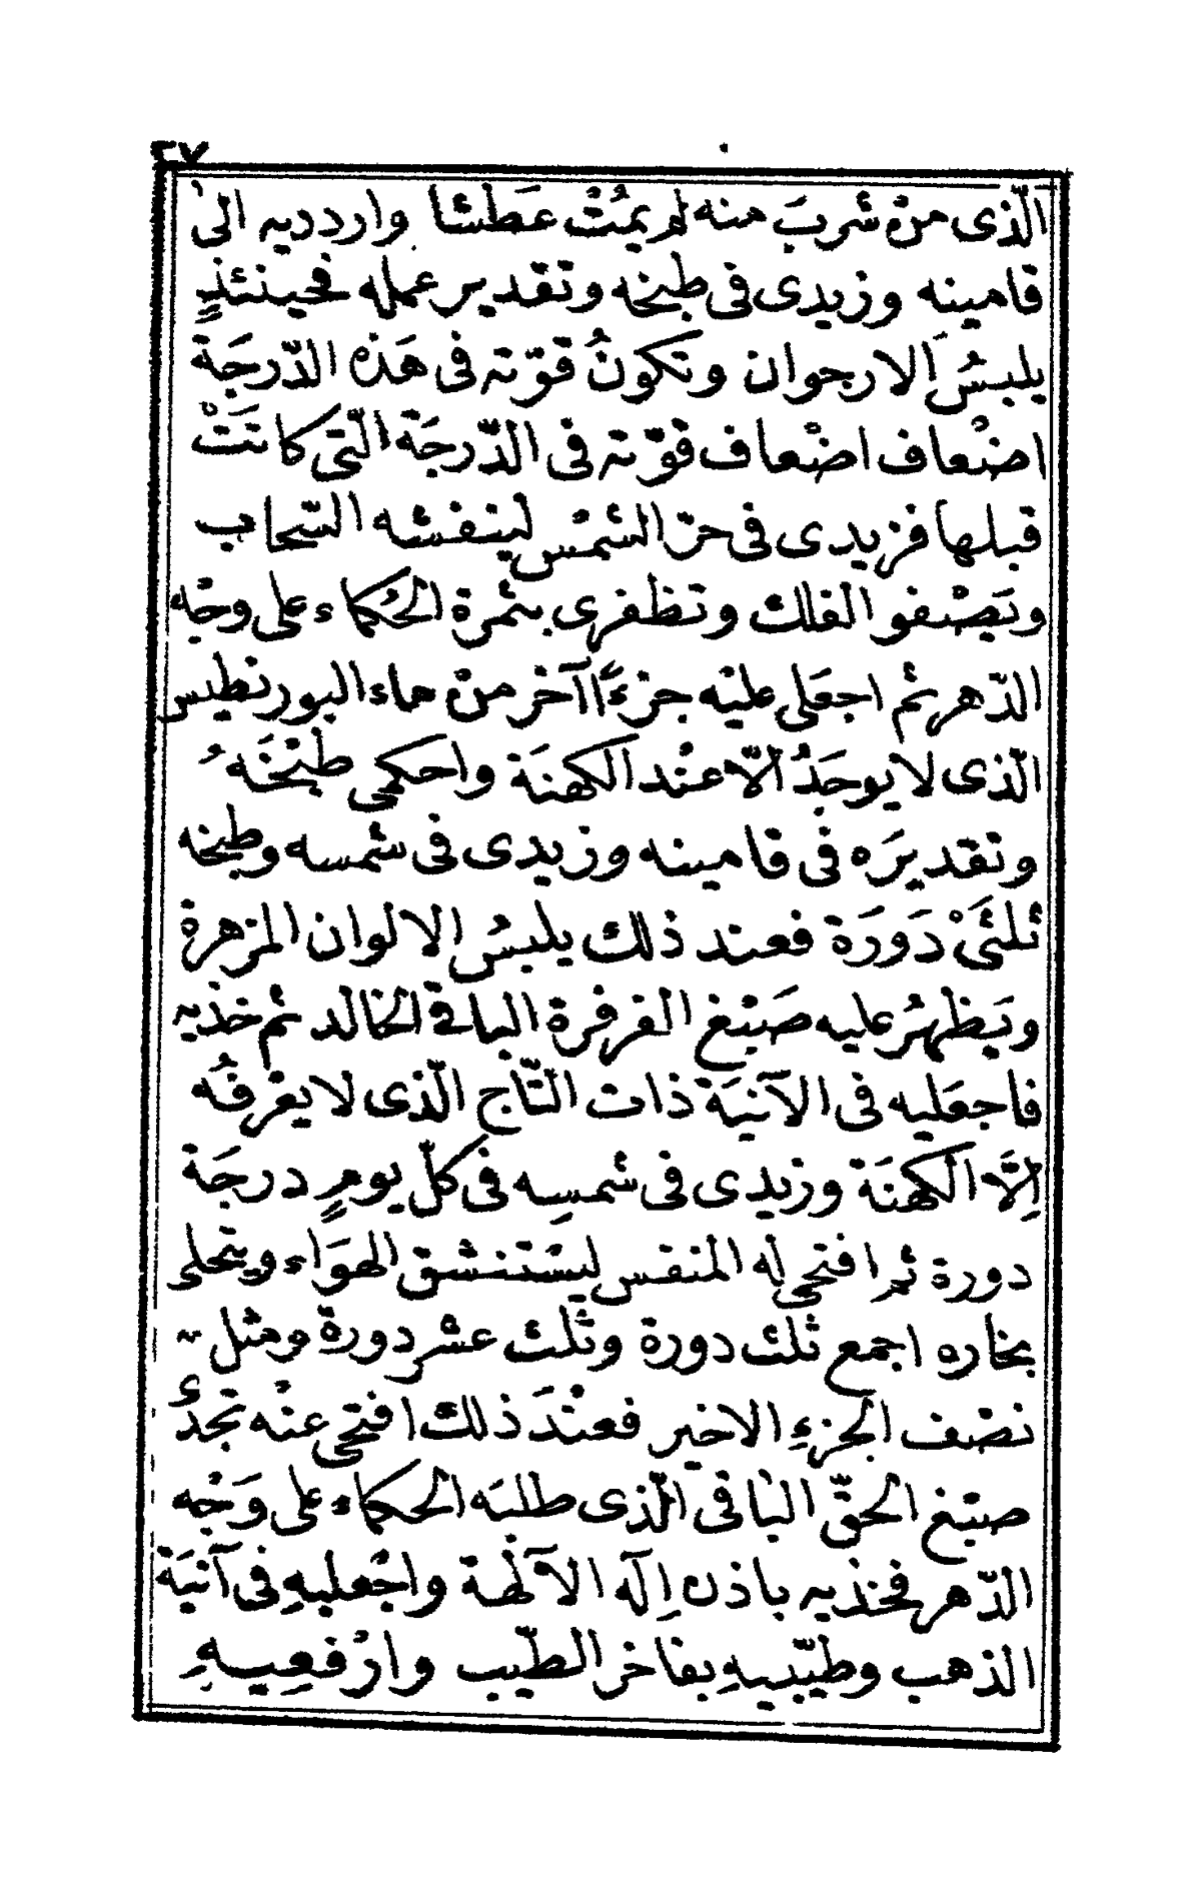 ٢٧
الّذى منْ شربَ منه لم يمُتْ عَطَشا وارددیه الى
قامينه وزيدى فى طبخه وتقدير عمله فحينئذٍ
يلبسُ الارجوان وتكونُ قوّته فى هَذه الدّرجَة
اضْعاف اضْعاف قوّته فى الدّرجَة الّتى كانَتْ
قبلها فزيدى فى حرّ الشمْس لينفشه السّحاب
ويَصْفو الفلك وتظفرى بثمرة الحُكماء على وجْه
الدّهر ثم اجعَلى عليْه جزءًا آخر منْ ماء البورنطيس
الّذى لا يوجَدُ الّا عنْد الكهنَة واحكمى طبْخَهُ
وتقديرَه فى قامينه وزيدى فى شمسه وطبخه
ثلثَىْ دَورَة فعند ذلك يلبسُ الالوان المزهرة
ويَظهرُ عليه صَبْغ الفرفرة الباقى الخالد ثم خذيه
فاجعَليه فى الآنيَة ذات التّاج الّذى لا يعْرفُه
اِلَّا الكهنَة وزيدى فى شمسِه فى كلّ يومٍ درجَة
دورة ثم افتحى له المنفس ليسْتنشق الهوَاء ويتحلى
بخاره اجمع ثلث دورة وثلث عشر دورة ومثل
نصْف الجزءِ الاخير فعنْدَ ذلك افتحى عنْه تجدُ
صبْغ الحقّ الباقى الّذى طلبَه الحكماء على وَجْه
الدّهر فخذيه باذن اِلٓه الآلهة واجْعليهِ فى آنيَة
الذهب وطيّبيهِ بفاخر الطّيب وارْفعِيهِ